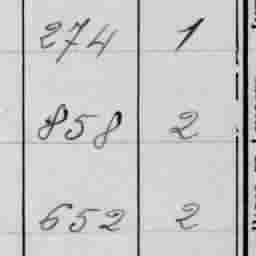 274 1
858 2
652 2